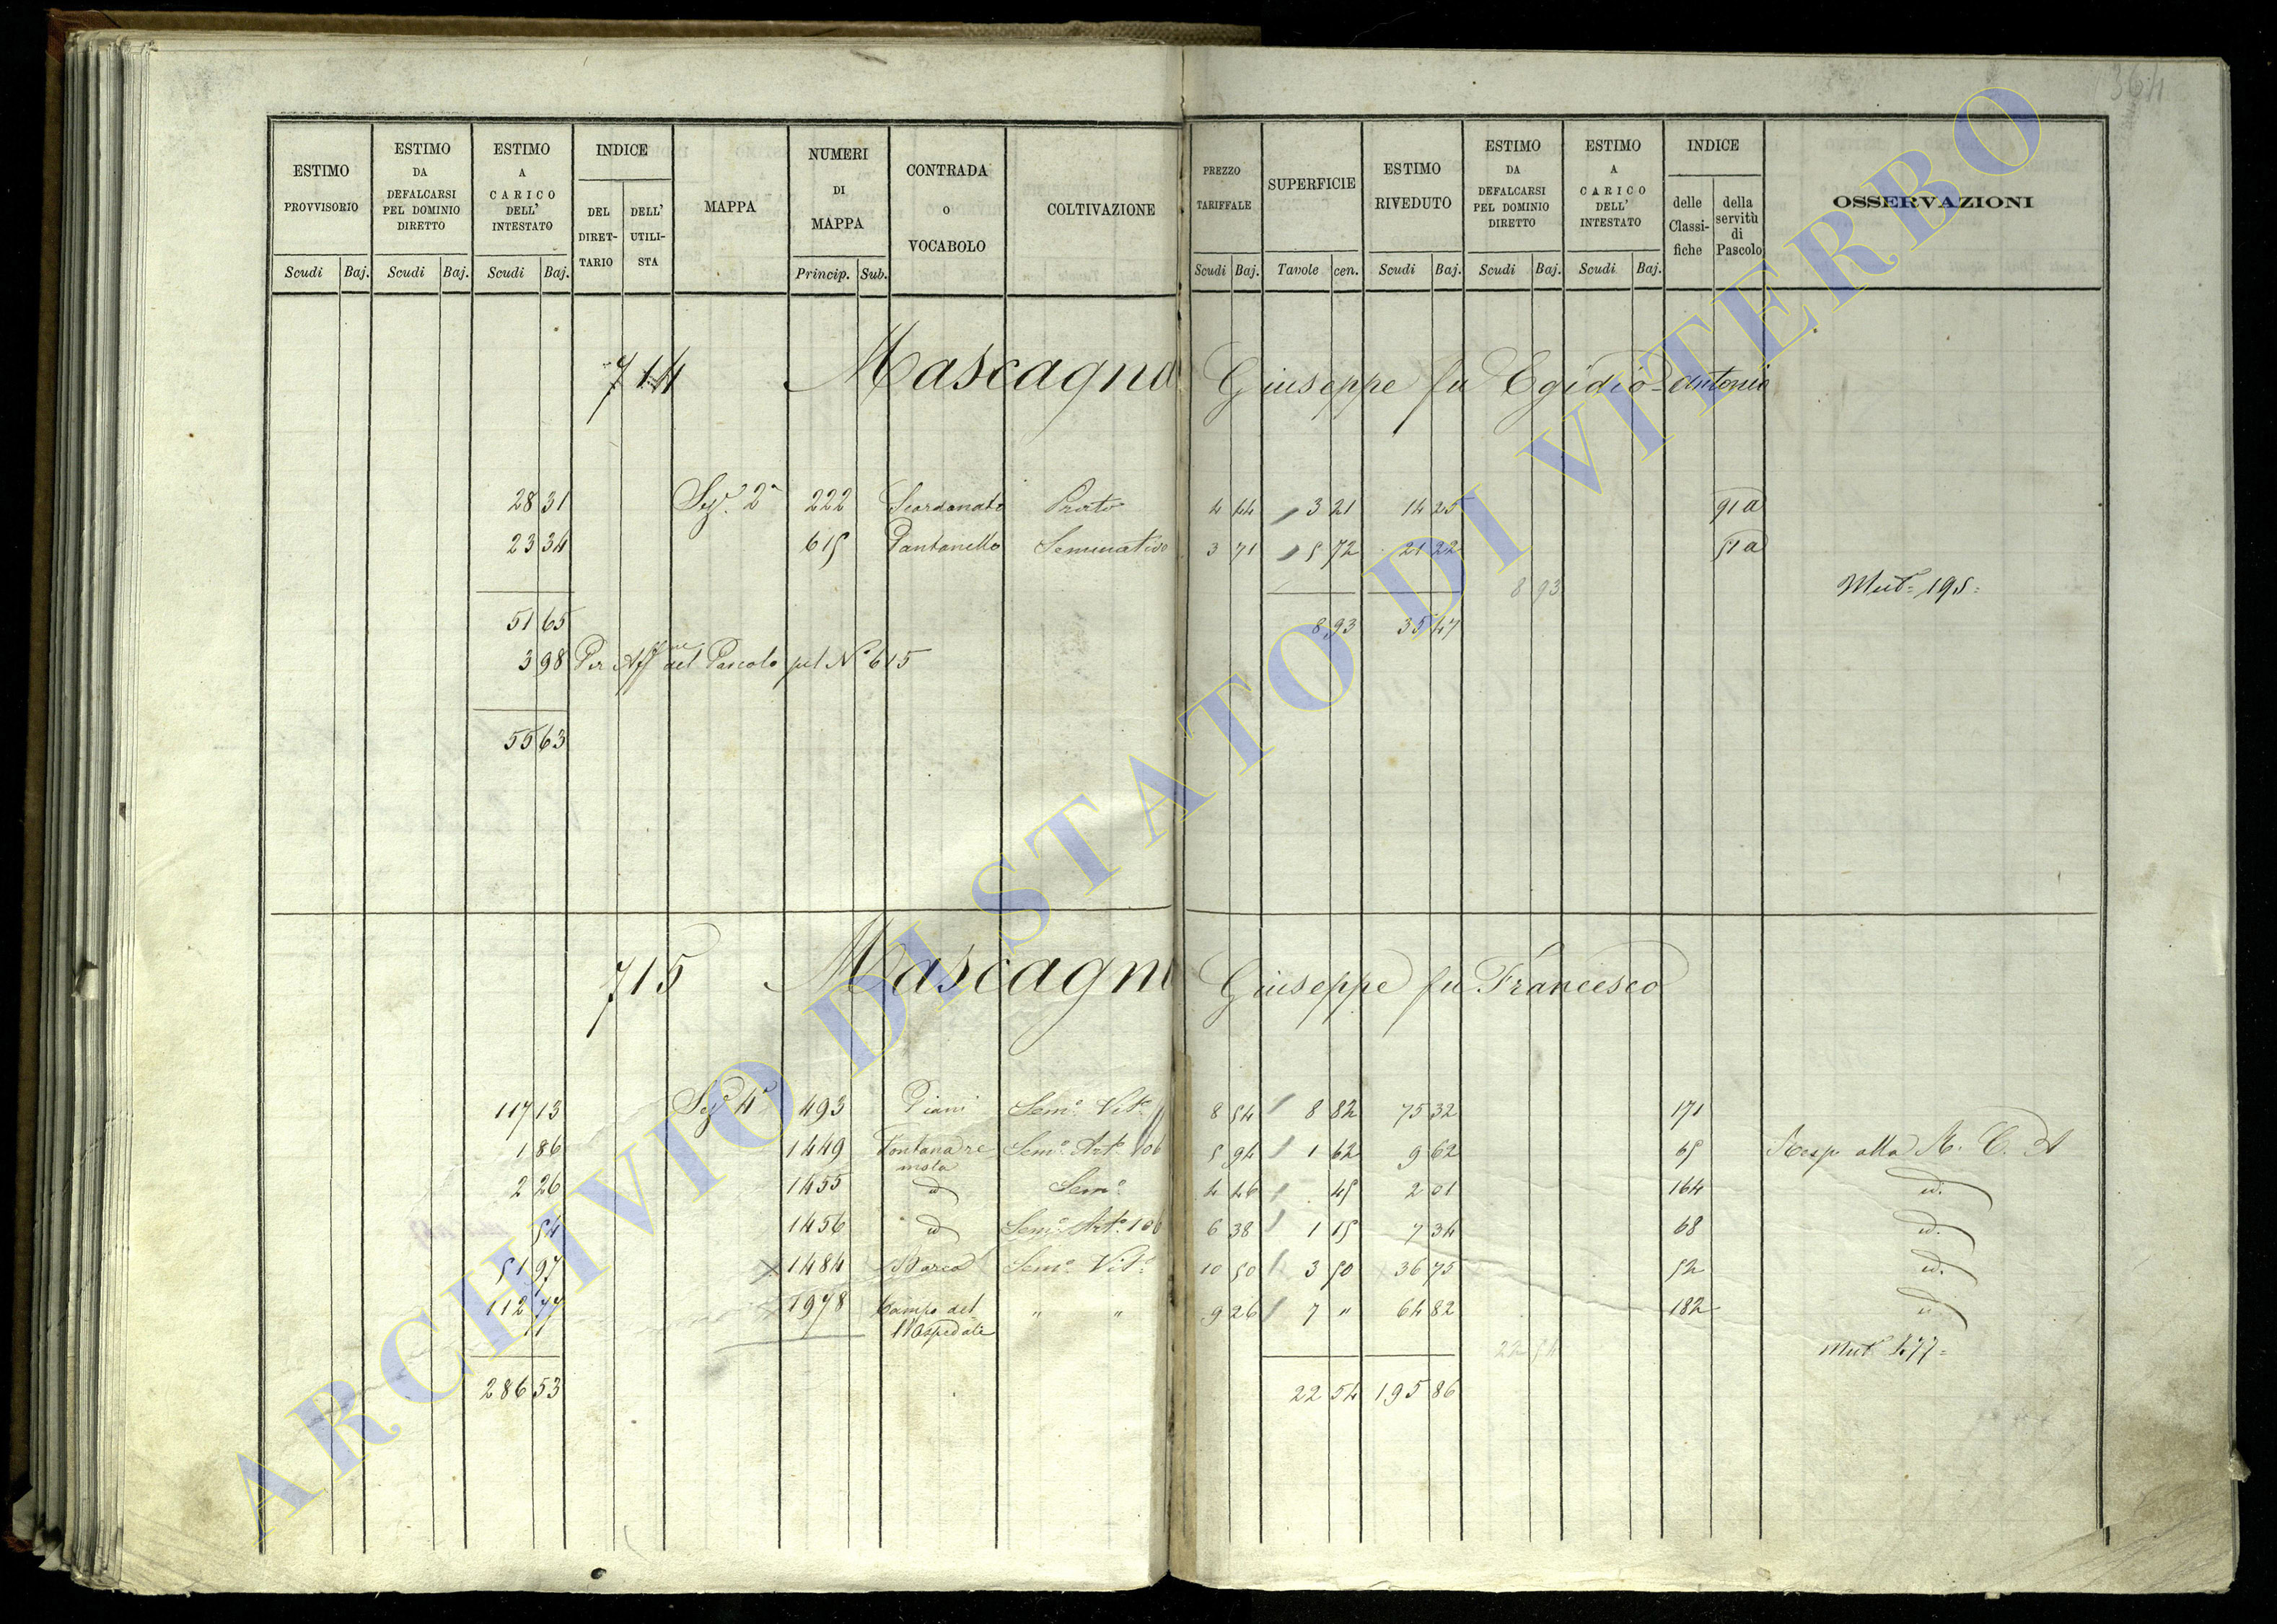 364
ESTIMO PROVVISORIO Scudi Baj.
ESTIMO DA DEFALCARSI PEL DOMINIO DIRETTO Scudi Baj.
ESTIMO A CARICO DELL' INTESTATO Scudi Baj.
INDICE DEL DIRETTARIO DELL' UTILISTA
MAPPA
NUMERI DI MAPPA Princip. Sub.
CONTRADA O VOCABOLO
COLTIVAZIONE
PREZZO TARIFFALE Scudi Baj.
SUPERFICIE Tavole cen.
ESTIMO RIVEDUTO Scudi Baj.
ESTIMO DA DEFALCARSI PEL DOMINIO DIRETTO Scudi Baj.
ESTIMO A CARICO DELL' INTESTATO Scudi Baj.
INDICE delle Classifiche della servitù di Pascolo
OSSERVAZIONI
714 Mascagna Giuseppe fu Egidio Antonio
28 31 Sez. 2ª 222 Scardonato Prato 4 44 3 21 14 25 91 a
23 34 615 Pantanello Seminativo 3 71 5 72 21 22 51 a
8 93 Mut. 195
51 65 8 93 35 47
3 98 Per Aff.ne del Pascolo pel N° 615
55 63
715 Mascagni Giuseppe fu Francesco
117 13 Sez. 4ª 493 Piani Sem.o Vit.o 8 54 8 82 75 32 171
1 86 1449 Fontana re Sem.o Art. 106 5 94 1 62 9 62 65 Resp. alla R. C. A
mola
2 26 1455 id Sem.o 4 46 45 2 01 164 id.
54 1456 id Sem.o Art. 106 6 38 1 15 7 34 68 id.
51 97 1484 Barca Sem.o Vit.o 10 50 3 50 36 75 52 id.
112 77 1978 Campo del " " 9 26 7 " 64 82 182 id
l'Ospedale
22 54 Mut. 477
286 53 22 54 195 86
ARCHIVIO DI STATO DI VITERBO